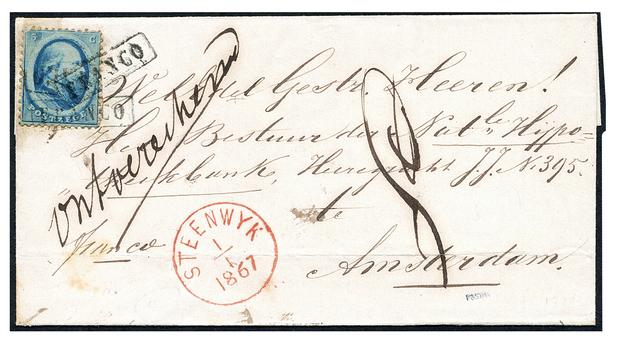 5 C
POSTZEGEL
FRANCO
NCO
Wel Edel Gestr. Heeren!
Het Bestuur der Natle Hypo-
theekbank, Heregracht JJ. N. 395.
te
Amsterdam.
franco
STEENWYK
1/
1867